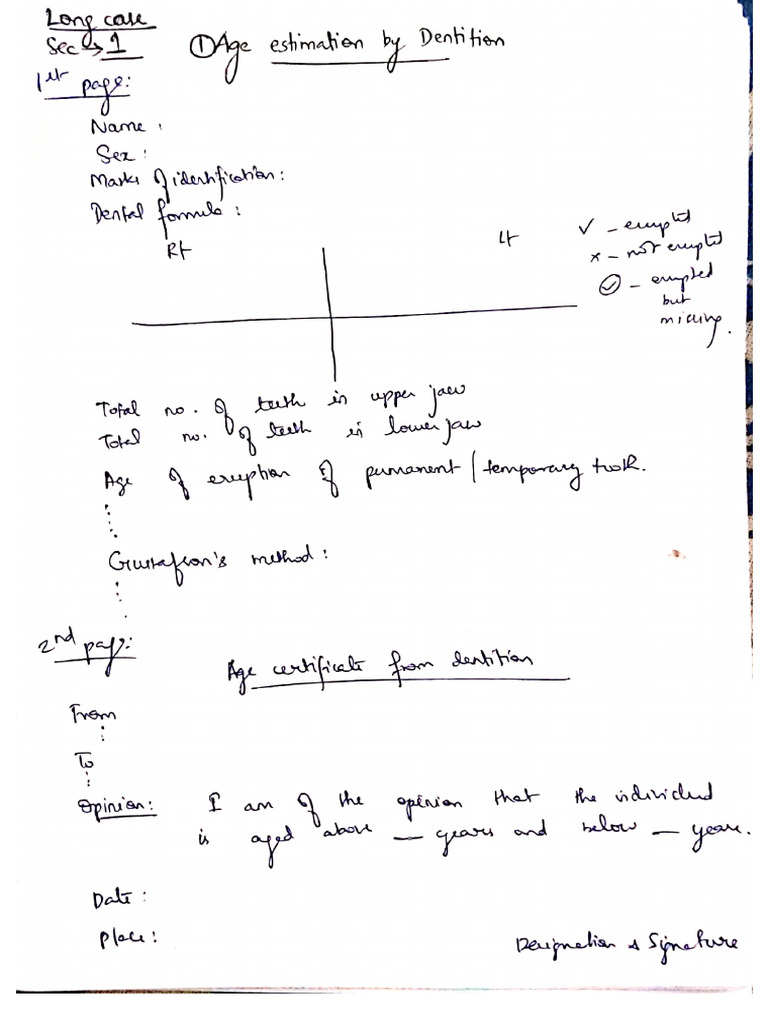 Long case
Sec → 1
① Age estimation by Dentition
1st page:
Name :
Sex :
Marks of identification :
Dental formula :
Rt
Lt
✓ - erupted
x - not erupted
✓ - erupted
but
missing.
Total no. of teeth in upper jaw
Total no. of teeth in lower jaw
Age of eruption of permanent / temporary tooth.
Gustafson's method :
2nd page:
Age certificate from dentition
From
To
Opinion: I am of the opinion that the individual
is aged above — years and below — years.
Date :
Place :
Designation & Signature